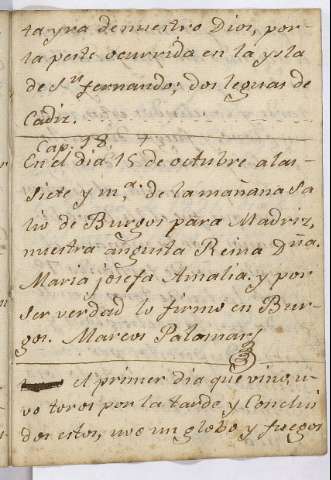 ta yra de nuestro Dios, por
la peste ocurrida en la ysla
de Sn. fernando; dos leguas de
Cadiz.
Cap. 18.
En el dia 15 de octubre a las
siete y ma. de la mañana sa
lio de Burgos para Madriz,
nuestra augusta Reina Dña.
Maria josefa Amalia. y por
ser verdad lo firmo en Bur-
gos. Marcos Palomar
el primer dia que vino, u-
vo toros por la tarde y Conclui
dos estos, uvo un globo y fuegos